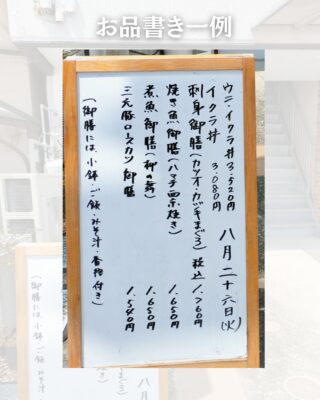 お品書き一例
八月二十六日(火)
ウニ・イクラ丼 3.520円
イクラ丼 3.080円
刺身御膳(カツオ・カジキまぐろ) 税込 1.760円
焼き魚御膳(ハマチ西京焼き) 1.650円
煮魚御膳(柳の舞) 1.650円
三元豚ロースカツ御膳 1.540円
(御膳には、小鉢・ご飯・みそ汁・香物付き)